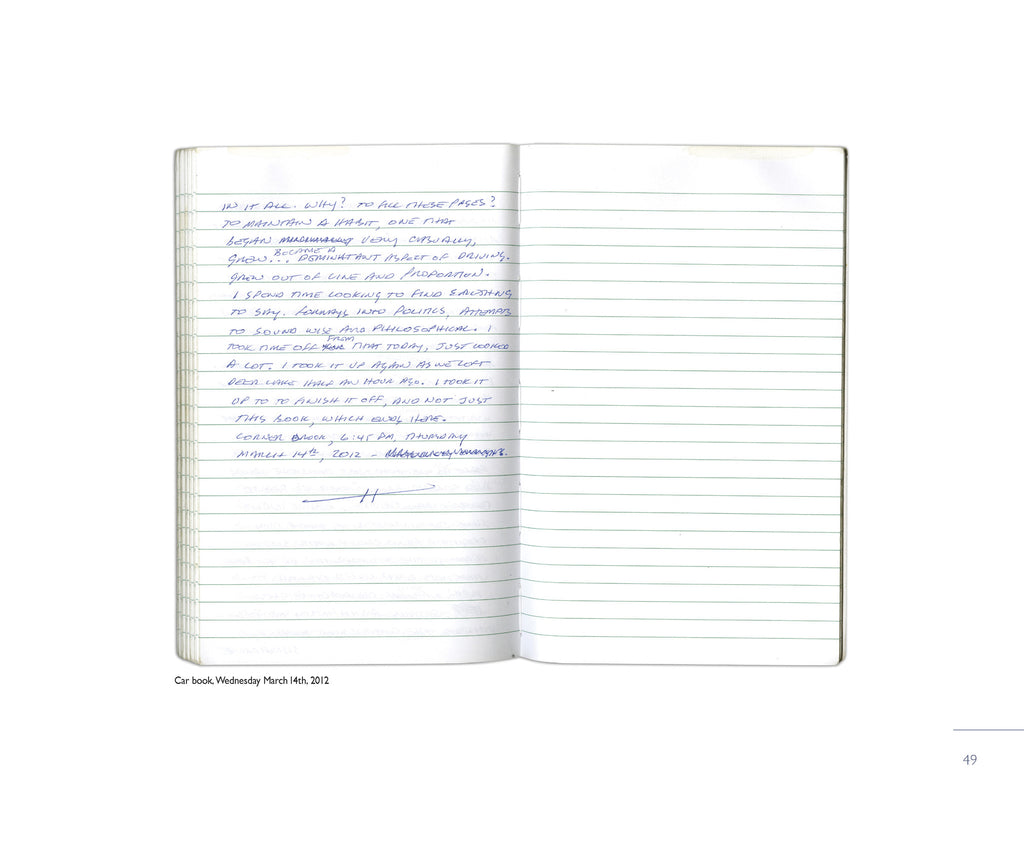 IN IT ALL. WHY? TO FILL THESE PAGES?
TO MAINTAIN A HABIT, ONE THAT
BEGAN VERY CASUALLY,
GREW... BECAME A DOMINATANT ASPECT OF DRIVING.
GREW OUT OF LINE AND PROPORTION.
I SPEND TIME LOOKING TO FIND SOMETHING
TO SAY. FORRAYS INTO POLITICS, ATTEMPTS
TO SOUND WISE AND PHILOSOPHICAL. I
TOOK TIME OFF FROM THAT TODAY, JUST LOOKED
A LOT. I TOOK IT UP AGAIN AS WE LEFT
DEER LAKE HALF AN HOUR AGO. I TOOK IT
UP TO TO FINISH IT OFF, AND NOT JUST
THIS BOOK, WHICH ENDS HERE.
CORNER BROOK, 6:45 PM, THURSDAY
MARCH 14th, 2012 -
Car book, Wednesday March 14th, 2012
49